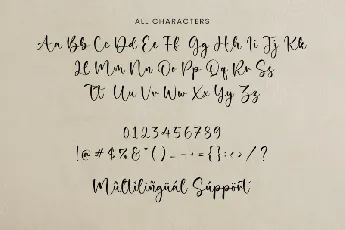 ALL CHARACTERS
Aa Bb Cc Dd Ee Ff Gg Hh Ii Jj Kk
Ll Mm Nn Oo Pp Qq Rr Ss
Tt Uu Vv Ww Xx Yy Zz
0123456789
!@#$%&*()_-+={}:;<>/?
Mûltilíñgüál Súppört